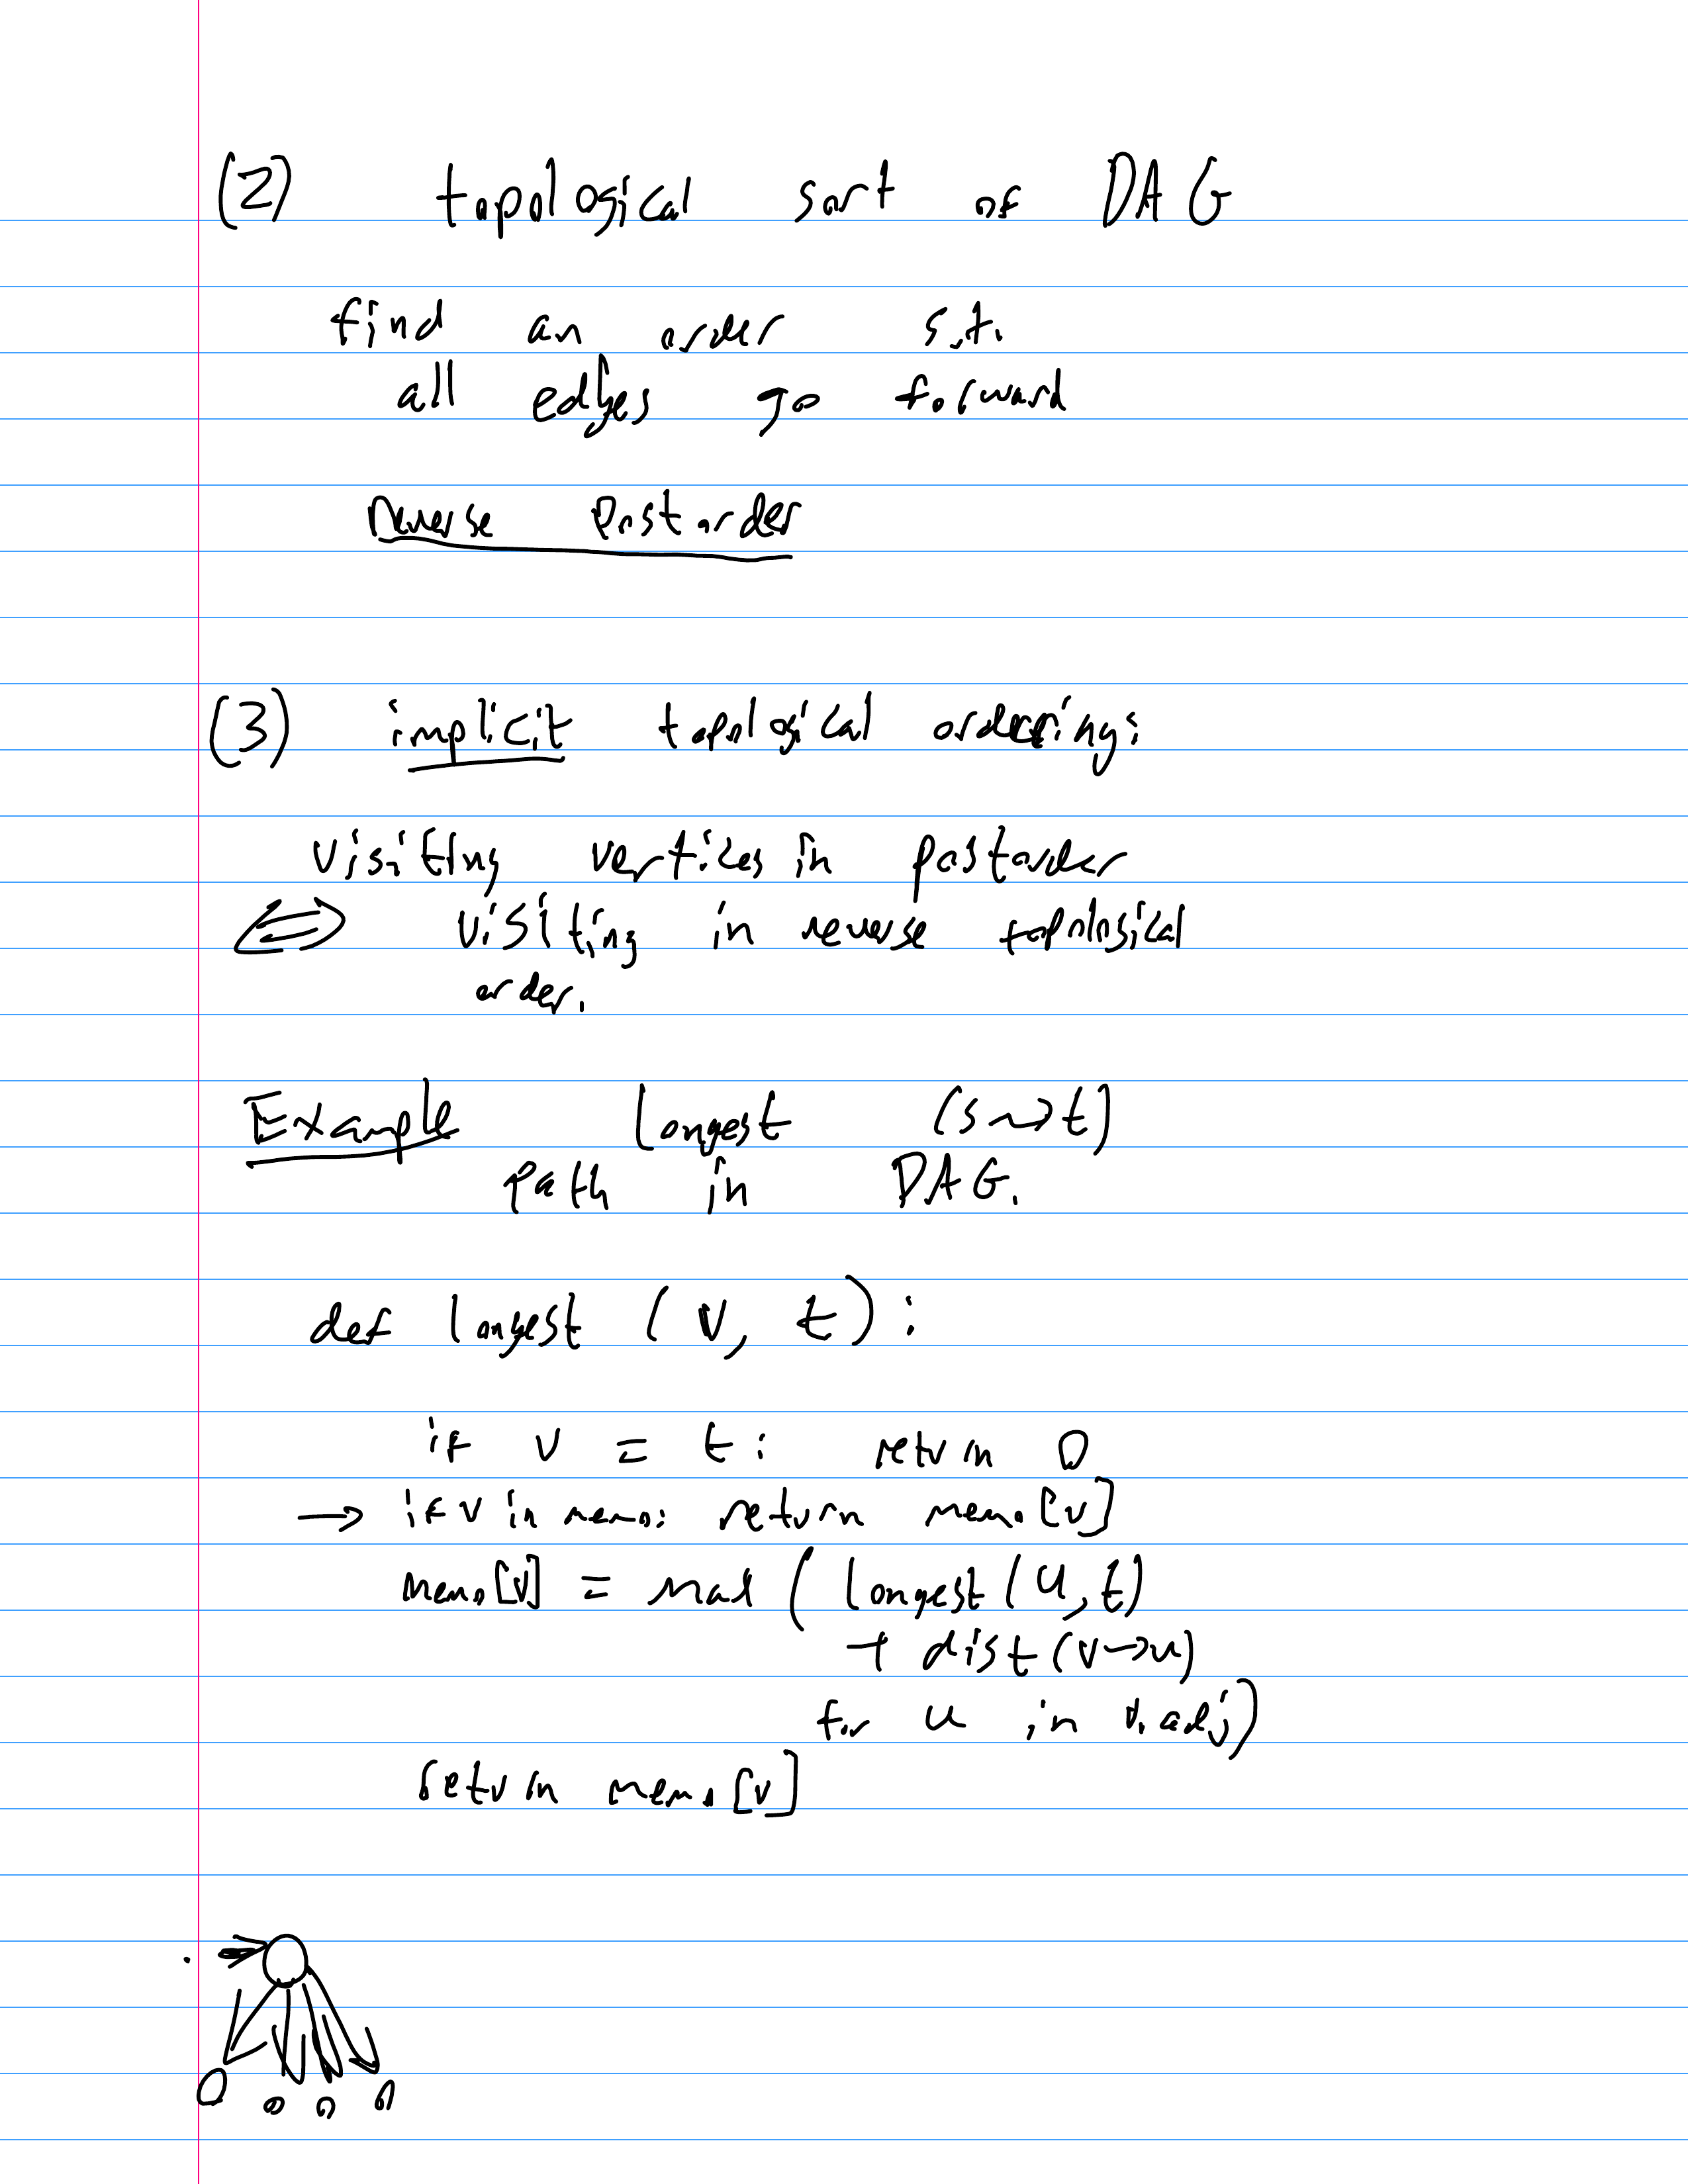 (2) topological sort of DAG
find an order s.t.
all edges go forward
Reverse Postorder
(3) implicit topological ordering:
visiting vertices in postorder
⟺ visiting in reverse topological
order.
Example Longest (s⇝t)
path in DAG.
def longest (v, t):
if v = t: return 0
→ if v in memo: return memo[v]
memo[v] = max (longest(u,t)
+ dist(v→u)
for u in v.adj)
return memo[v]